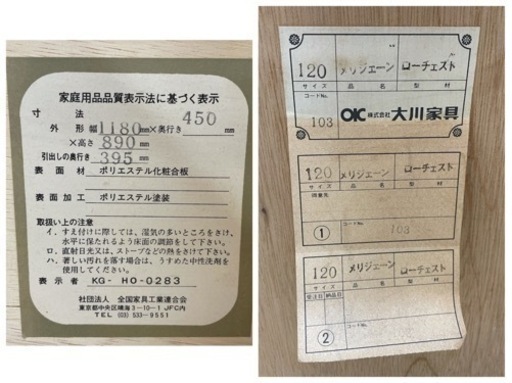 家庭用品品質表示法に基づく表示
寸法
外形 幅1180mm×奥行き450mm
×高さ890mm
引出しの奥行き395mm
表面材 ポリエステル化粧合板
表面加工 ポリエステル塗装
取扱い上の注意
イ．すえ付けに際しては、湿気の多いところをさけ、
水平に保たれるよう床面の調節をして下さい。
ロ．直射日光又は、ストーブなどの熱をさけて下さい。
ハ．著しい汚れを落す場合は、うすめた中性洗剤を
使用してください。
表示者 KG-HO-0283
社団法人 全国家具工業連合会
東京都中央区晴海3-10-1 JFC内
TEL (03) 533-9551
120 メリジェーン ローチェスト
サイズ 品名 型材
コードNo.
103 OIC 株式会社 大川家具
120 メリジェーン ローチェスト
サイズ 品名 型材
コードNo.
① 103
120 メリジェーン ローチェスト
サイズ 品名 型材
受注日 納品日 コードNo.
②